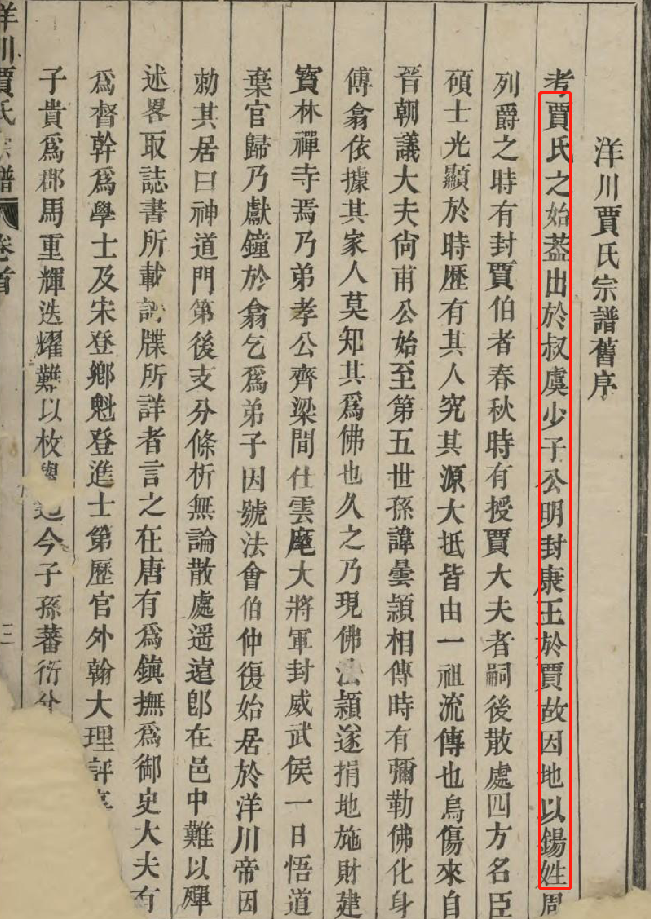 洋川賈氏宗譜舊序
考賈氏之始葢出於叔虞少子公明封康王於賈故因地以錫姓周
列爵之時有封賈伯者春秋時有授賈大夫者嗣後散處四方名臣
碩士光顯於時歷有其人究其源大抵皆由一祖流傳也烏傷來自
晉朝議大夫尙甫公始至第五世孫諱曇頴相傳時有彌勒佛化身
傅翕依據其家人莫知其爲佛也久之乃現佛法頴遂捐地施財建
寳林禪寺焉乃弟孝公齊梁間仕雲麾大將軍封威武侯一日悟道
棄官歸乃獻鐘於翕乞爲弟子因號法會伯仲復始居於洋川帝因
勑其居曰神道門第後支分條析無論散處遥遠卽在邑中難以殫
述畧取誌書所載譜牒所詳者言之在唐有爲鎮撫爲御史大夫有
爲督幹爲學士及宋登鄉魁登進士第歷官外翰大理評事
子貴爲郡馬重輝迭耀難以枚舉迨今子孫蕃衍分
洋川賈氏宗譜 卷首 三